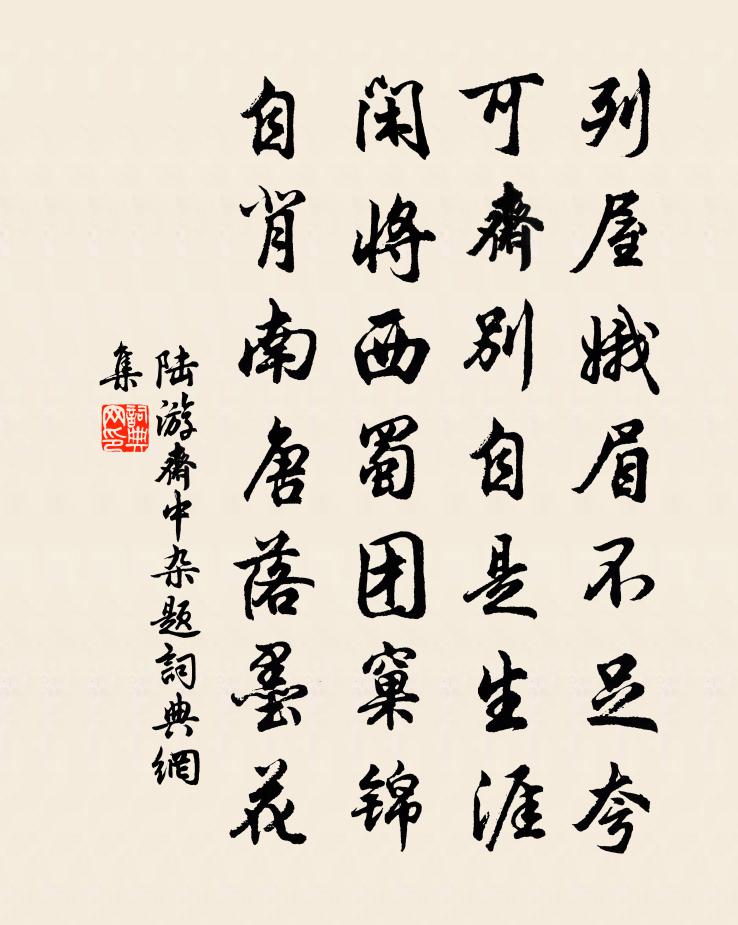 列屋娥眉不足夸
可齋别自是生涯
闲将西蜀团窠锦
自背南唐落墨花
陆游齋中杂题詞典網
集
詞典
网印